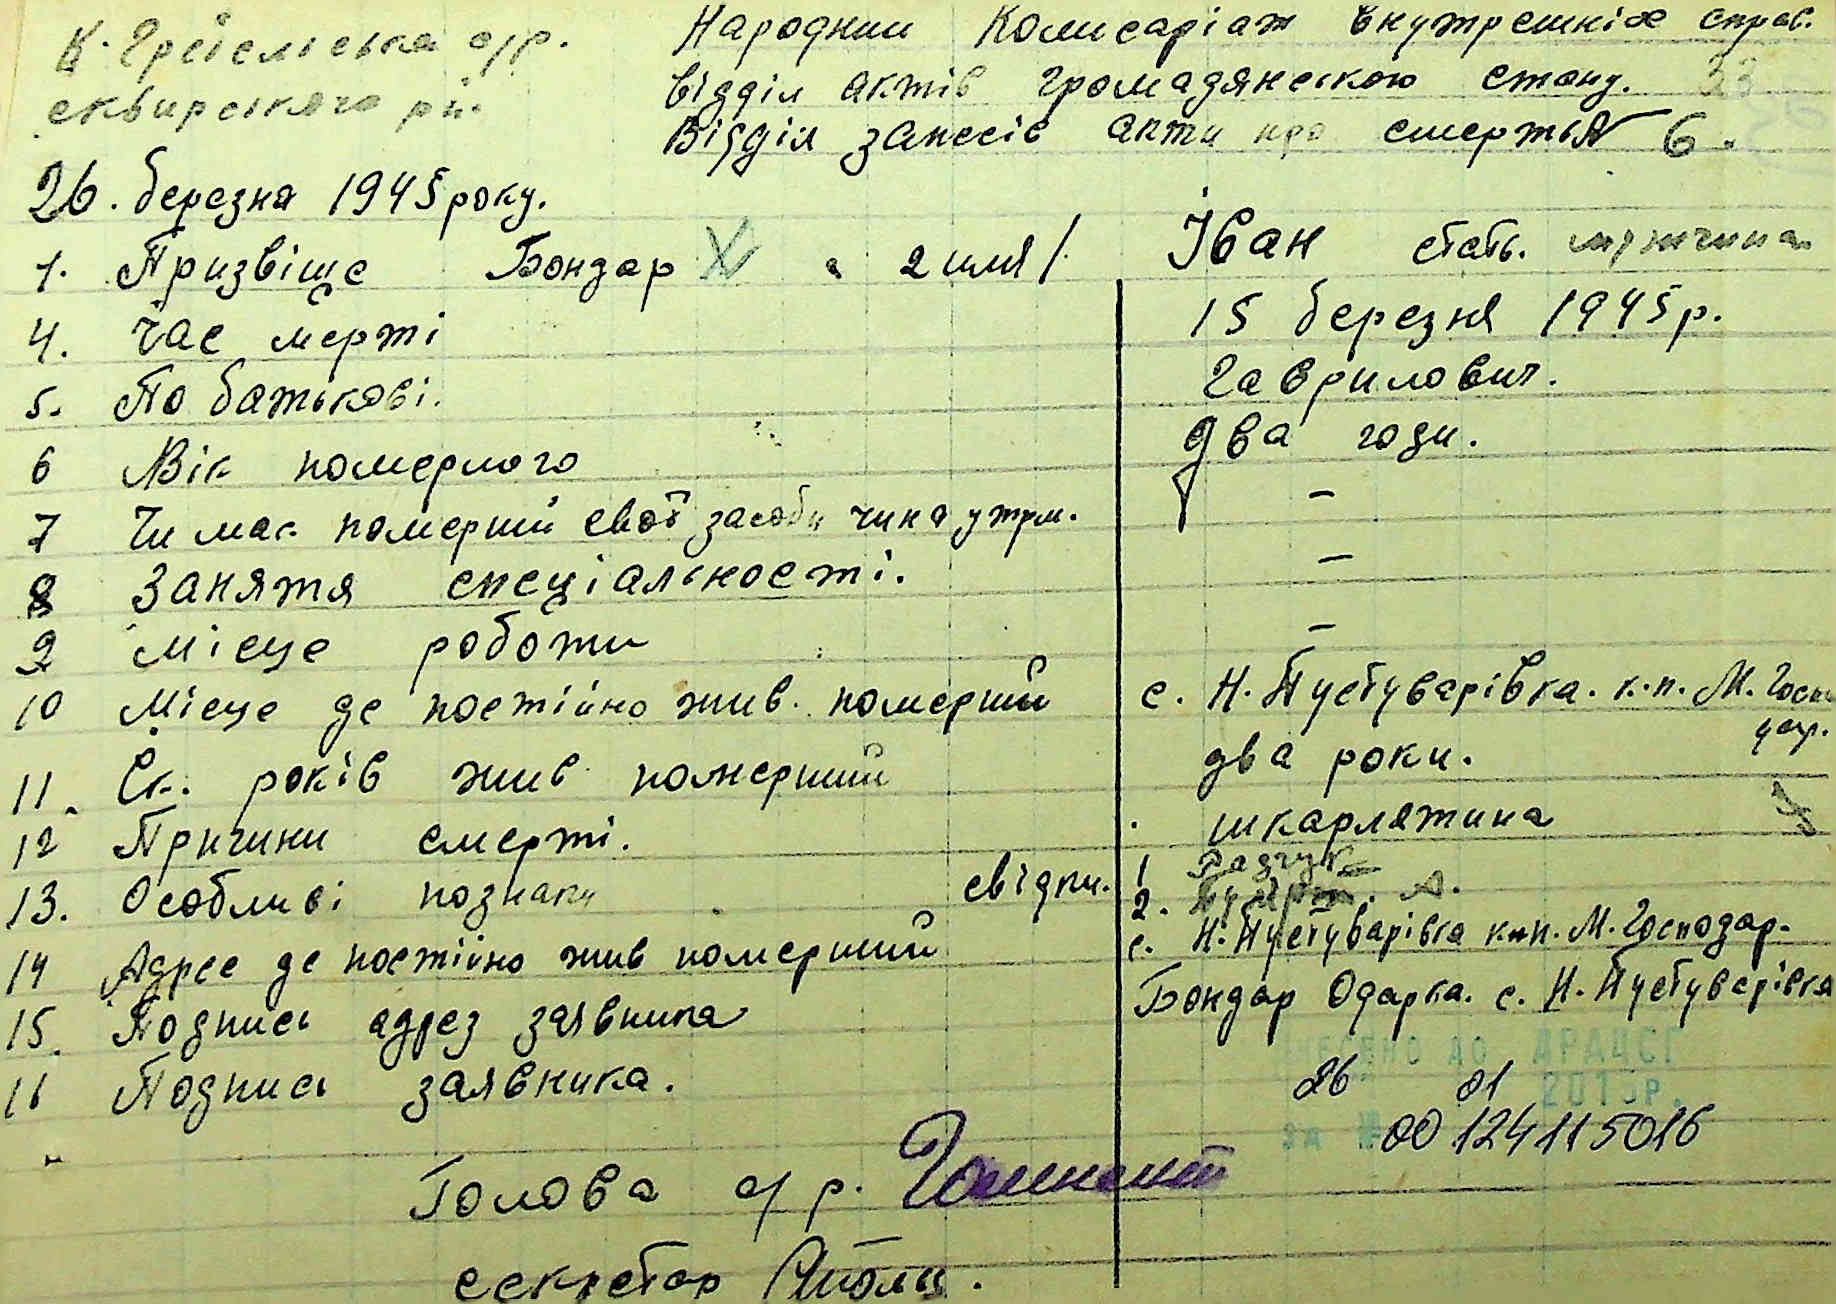 с/р.
сквирського рн.
Народний Комисаріат внутрешніх справ.
відділ актів громадянського стану. 33
Відділ записів акти про смерть № 6.
26. березня 1945 року.
1. Призвіще Бондар 2 имя/. Іван стать. мужчина
4. Час мерті 15 березня 1945 р.
5. По батькові. Гаврилович.
6 Вік померлого два годи.
7 Чи має померший свої засоби чи на утрим. –
8 Заняття спеціальності. –
9 Місце роботи –
10 Місце де постійно жив. померший с. Н. Пустуварівка. к.п. М. Госпо
дар.
11. Ск. років жив померший два роки.
12 Причини смерті. шкарлятина
13. Особливі познаки свідки. 1
2.
14 Адрес де постійно жив померший с. Н. Пустуварівка к.п. М. Господар.
15. Подпись адрез заявника Бондар Одарка. с. Н. Пустуварівка
16 Подпись заявника.
ВНЕСЕНО ДО ДРАЦСГ
26 01 2015р.
за № 00124115016
Голова с/р.
секретар